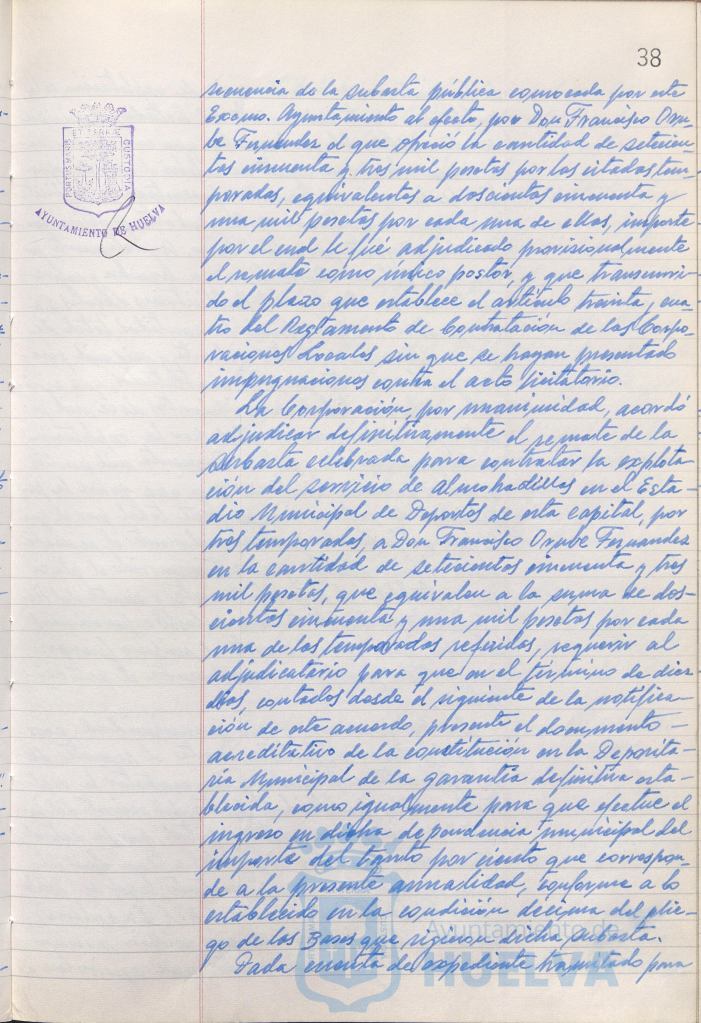 38
secuencia de la subasta pública convocada por este
Excmo. Ayuntamiento al efecto, por Don Francisco Oru-
be Fernandez el que ofreció la cantidad de setecien-
tas cincuenta y tres mil pesetas por las citadas tem-
poradas, equivalentes a doscientas cincuenta y
una mil pesetas por cada una de ellas, importe
por el cual le fué adjudicado provisionalmente
el remate como único postor, y que transcurri-
do el plazo que establece el artículo treinta y cua-
tro del Reglamento de Contratación de las Corpo-
raciones Locales sin que se hayan presentado
impugnaciones contra el acto licitatorio.
La Corporación, por unanimidad, acordó
adjudicar definitivamente el remate de la
subasta celebrada para contratar la explota-
ción del servicio de almohadillas en el Esta-
dio Municipal de Deportes de esta capital, por
tres temporadas, a Don Francisco Orube Fernandez
en la cantidad de setecientas cincuenta y tres
mil pesetas, que equivalen a la suma de dos-
cientas cincuenta y una mil pesetas por cada
una de las temporadas referidas, requerir al
adjudicatario para que en el término de diez
días, contados desde el siguiente de la notifica-
ción de este acuerdo, presente el documento
acreditativo de la constitución en la Deposita-
ria Municipal de la garantía definitiva esta-
blecida, como igualmente para que efectue el
ingreso en dicha dependencia municipal del
importe del tanto por ciento que correspon-
de a la presente anualidad, conforme a lo
establecido en la condición decima del plie-
go de las Bases que rigieron dicha subasta.
Dada cuenta de expediente tramitado para
PORTUS MARIS
ET TERRAE
CUSTODIA
AYUNTAMIENTO DE HUELVA
Ayuntamiento de
HUELVA